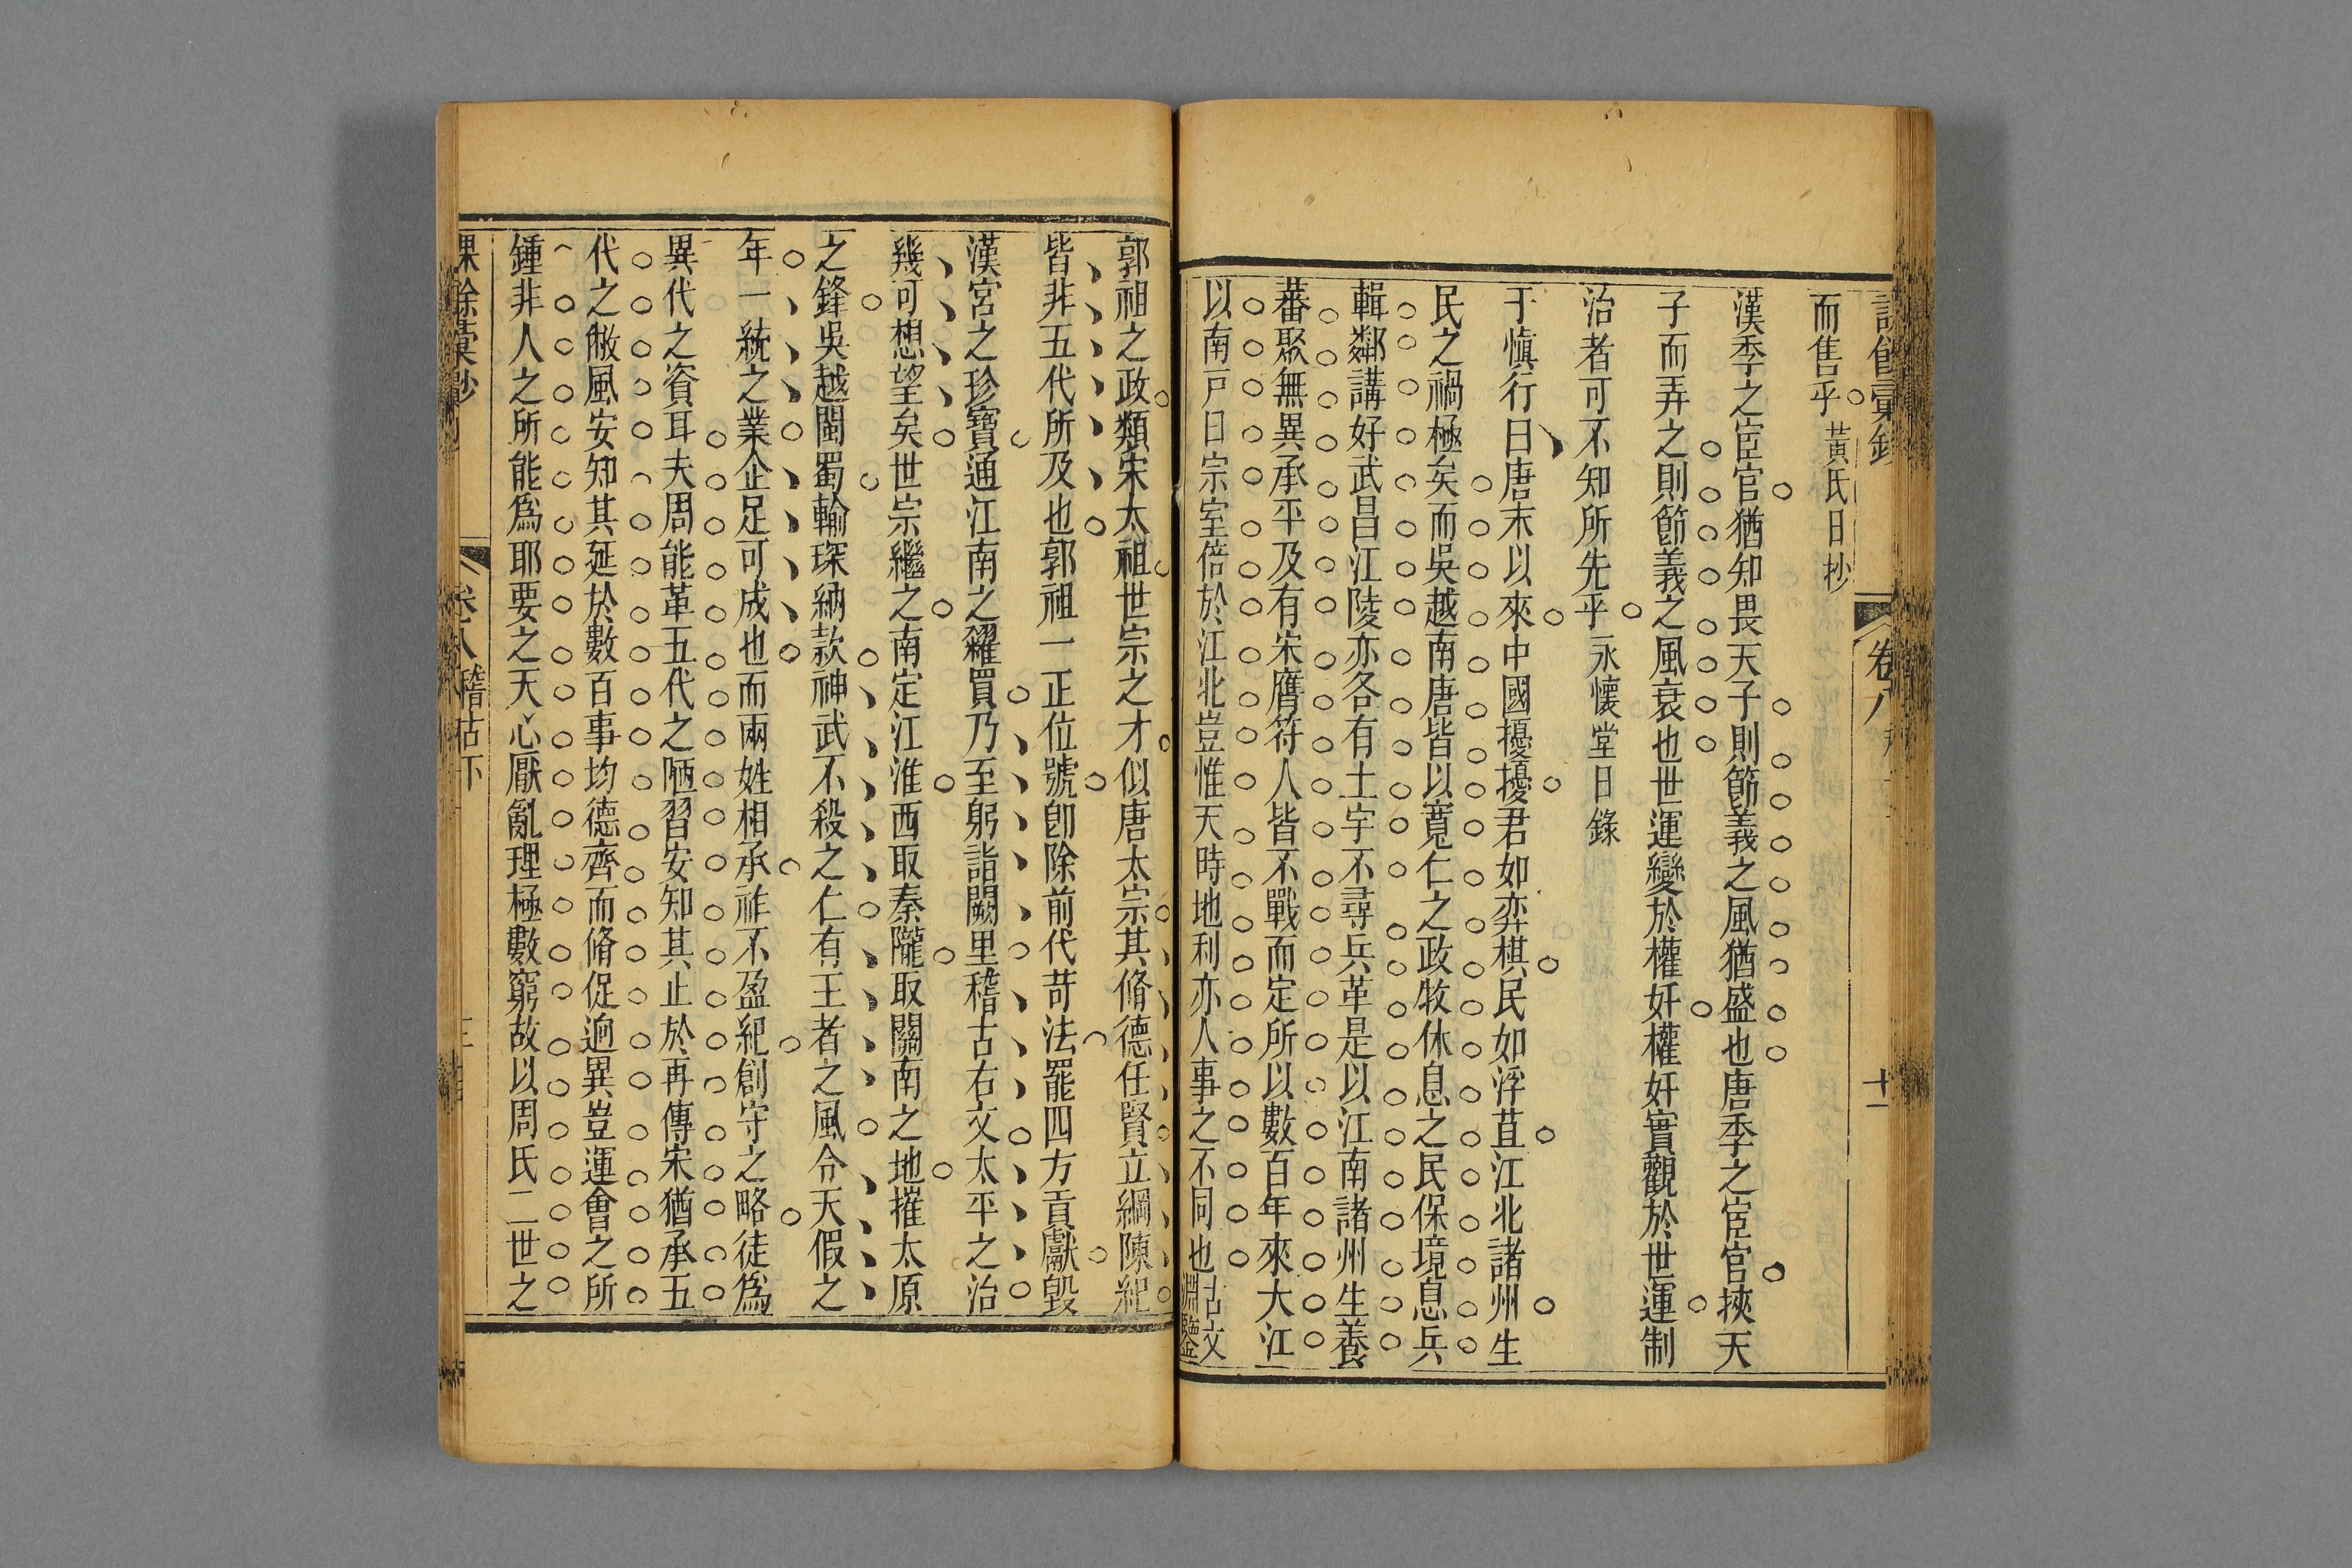 卷八
十一
而售乎黃氏日抄
漢季之宦官猶知畏天子則節義之風猶盛也唐季之宦官挾天
子而弄之則節義之風衰也世運變於權奸權奸實觀於世運制
治者可不知所先乎永懷堂日錄
于慎行曰唐末以來中國擾擾君如弈棋民如浮苴江北諸州生
民之禍極矣而吳越南唐皆以寬仁之政牧休息之民保境息兵
輯鄰講好武昌江陵亦各有土宇不尋兵革是以江南諸州生養
蕃聚無異承平及有宋膺符人皆不戰而定所以數百年來大江
以南戸口宗室倍於江北豈惟天時地利亦人事之不同也古文淵鑒
郭祖之政類宋太祖世宗之才似唐太宗其脩德任賢立綱陳紀
皆非五代所及也郭祖一正位號卽除前代苛法罷四方貢獻毀
漢宮之珍寶通江南之糴買乃至躬詣闕里稽古右文太平之治
幾可想望矣世宗繼之南定江淮西取秦隴取關南之地摧太原
之鋒吳越閩蜀輸琛納款神武不殺之仁有王者之風令天假之
年一統之業企足可成也而兩姓相承祚不盈紀創守之略徒爲
異代之資耳夫周能革五代之陋習安知其止於再傳宋猶承五
代之敝風安知其延於數百事均德齊而脩促逈異豈運會之所
鍾非人之所能爲耶要之天心厭亂理極數窮故以周氏二世之
卷八 稽古下